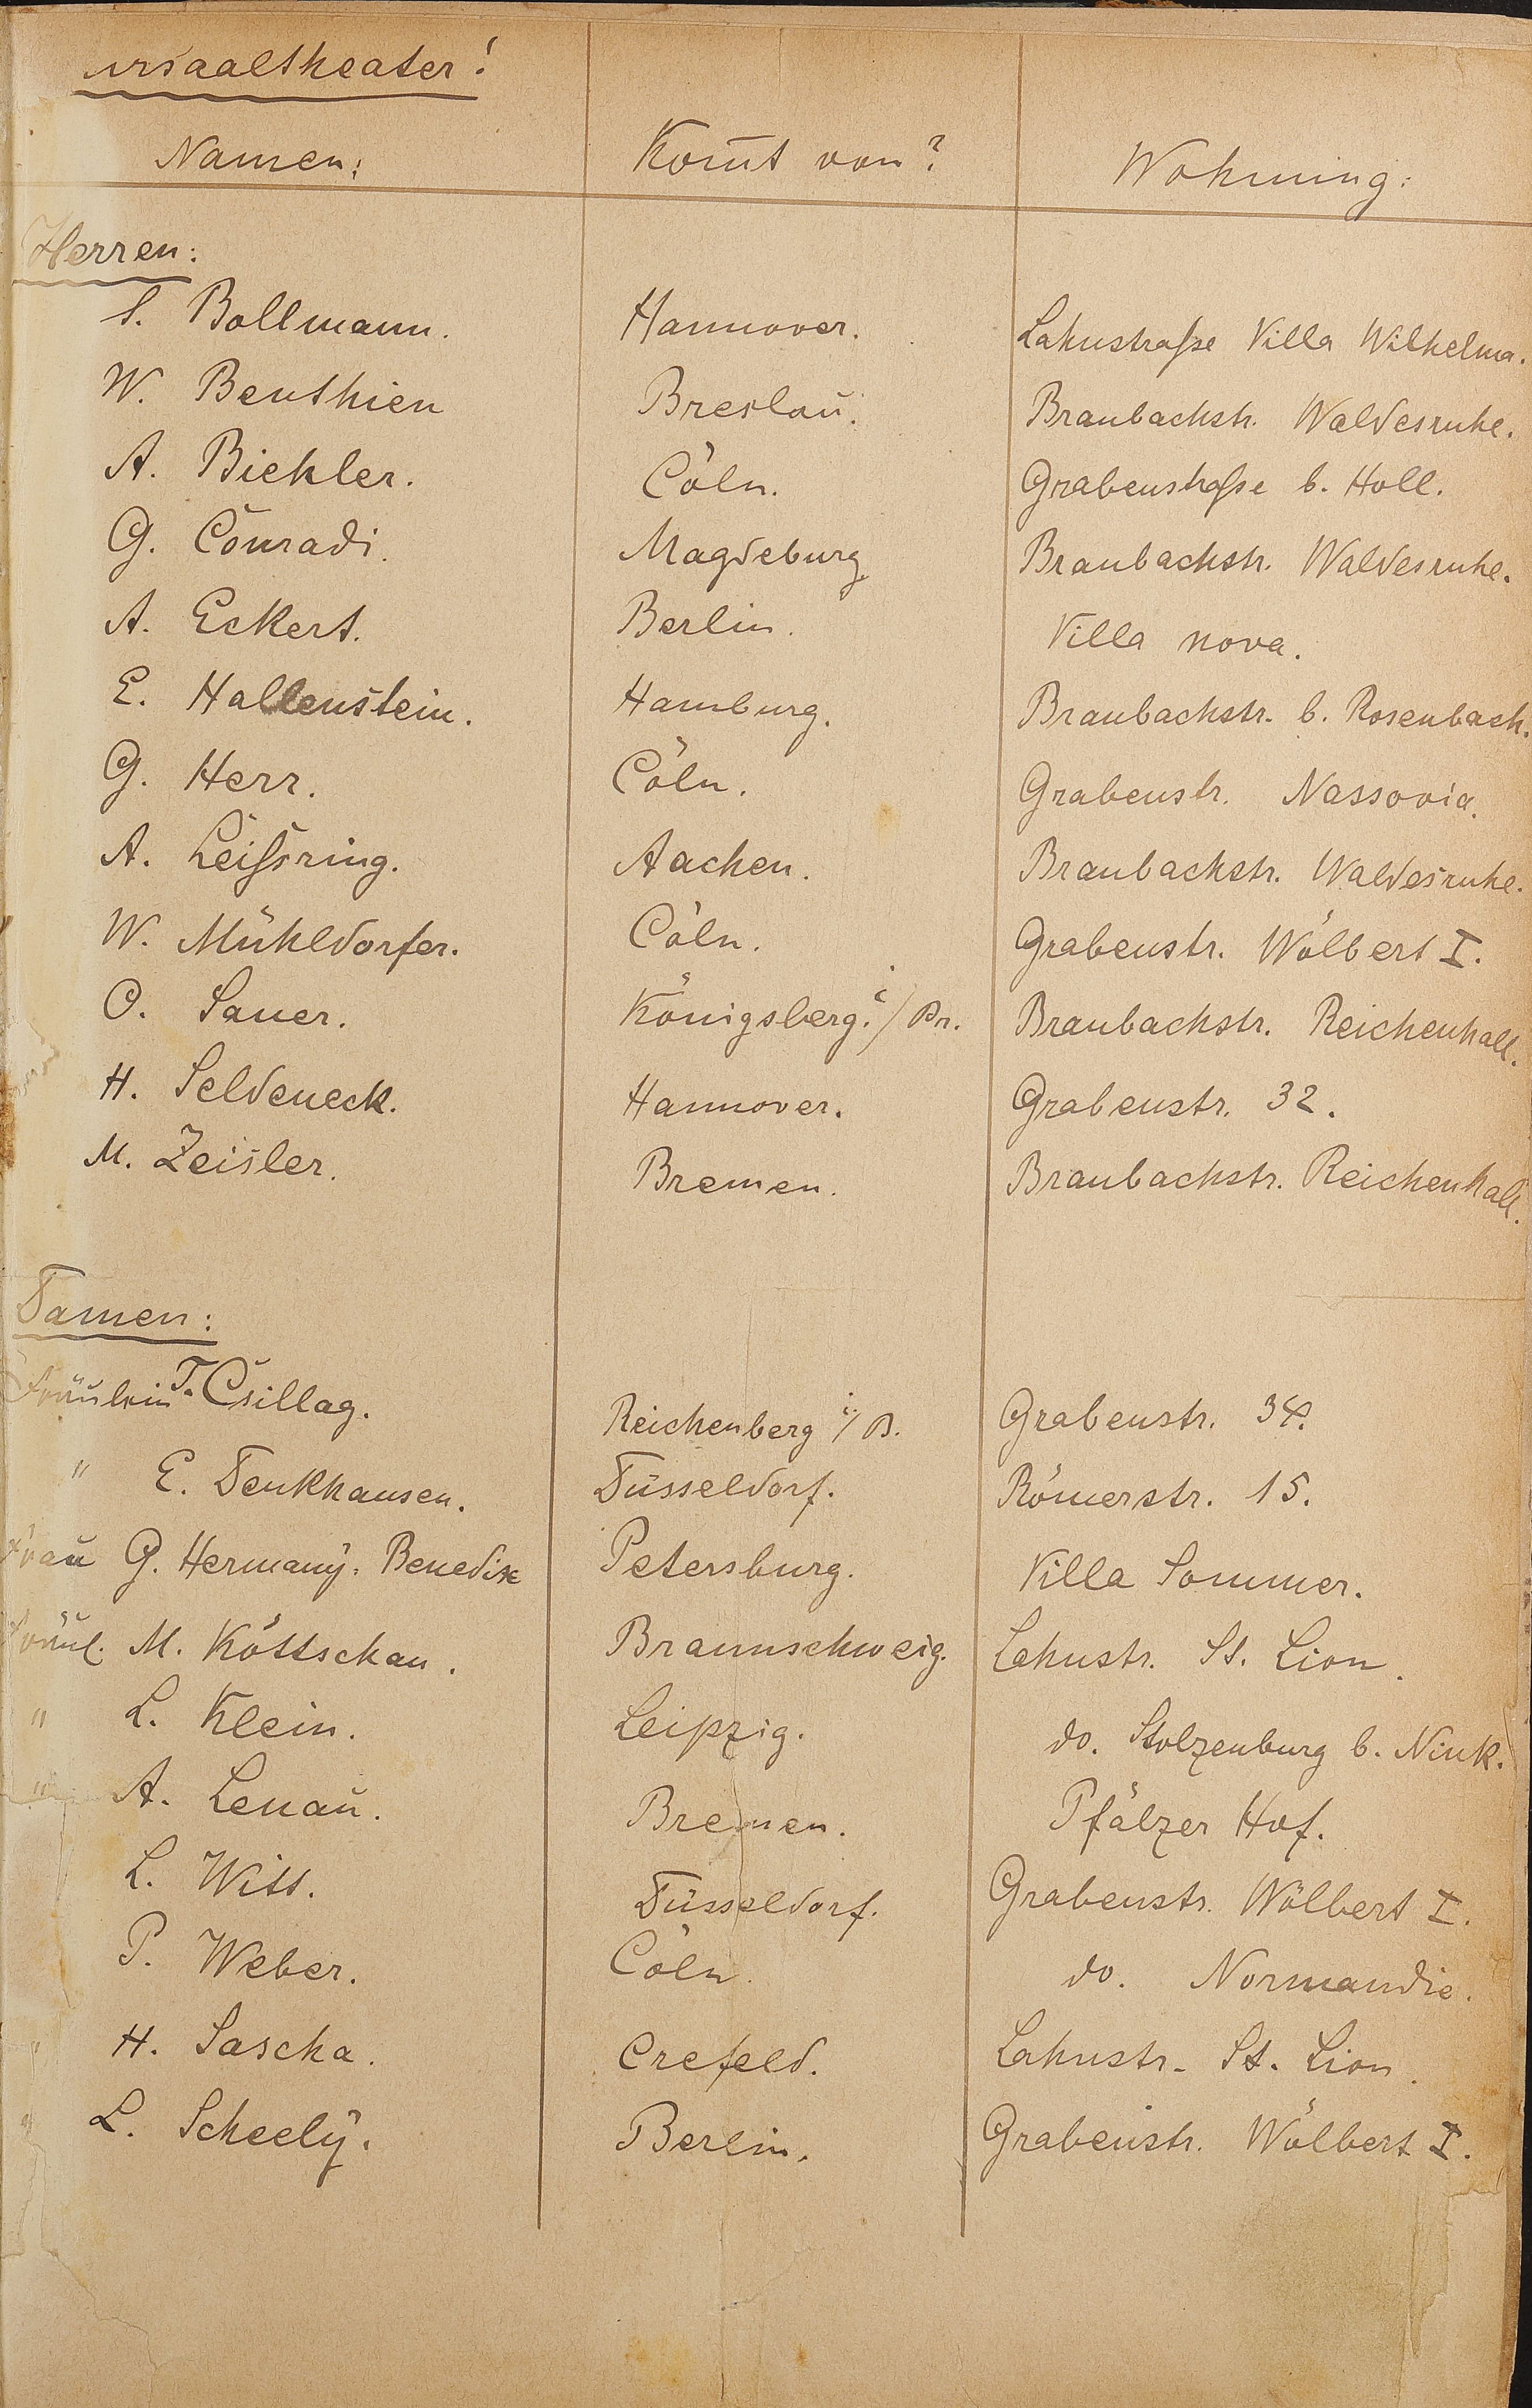 ursaaltheater!
Namen: Kom̄t von? Wohnung:
Herren:
S. Bollmann. Hannover. Lahnstraße Villa Wilhelma.
W. Benthien Breslau. Braubachstr. Waldesruhe.
A. Biehler. Cöln. Grabenstraße b. Holl.
G. Conradi. Magdeburg Braubachstr. Waldesruhe.
A. Eckert. Berlin. Villa nova.
E. Hallenstein. Hamburg. Braubachstr. b. Rosenbach.
G. Herr. Cöln. Grabenstr. Nassovia.
A. Leißring. Aachen. Braubachstr. Waldesruhe.
W. Mühldorfer. Cöln. Grabenstr. Wölbert I.
O. Sauer. Königsberg. i/Pr. Braubachstr. Reichenhall.
H. Seldeneck. Hannover. Grabenstr. 32.
M. Zeisler. Bremen. Braubachstr. Reichenhall.
Damen:
Fräulein T. Csillag. Reichenberg i/B. Grabenstr. 34.
" E. Denkhausen. Düsseldorf. Römerstr. 15.
Frau G. Hermany-Benedix Petersburg. Villa Sommer.
Fräul. M. Köttschau. Braunschweig. Lahnstr. St. Lion.
" L. Klein. Leipzig. do. Stolzenburg b. Nink.
" A. Lenau. Bremen. Pfälzer Hof.
L. Witt. Düsseldorf. Grabenstr. Wölbert I.
P. Weber. Cöln. do. Normandie.
" H. Sascha. Crefeld. Lahnstr. St. Lion.
" L. Scheely. Berlin. Grabenstr. Wölbert I.